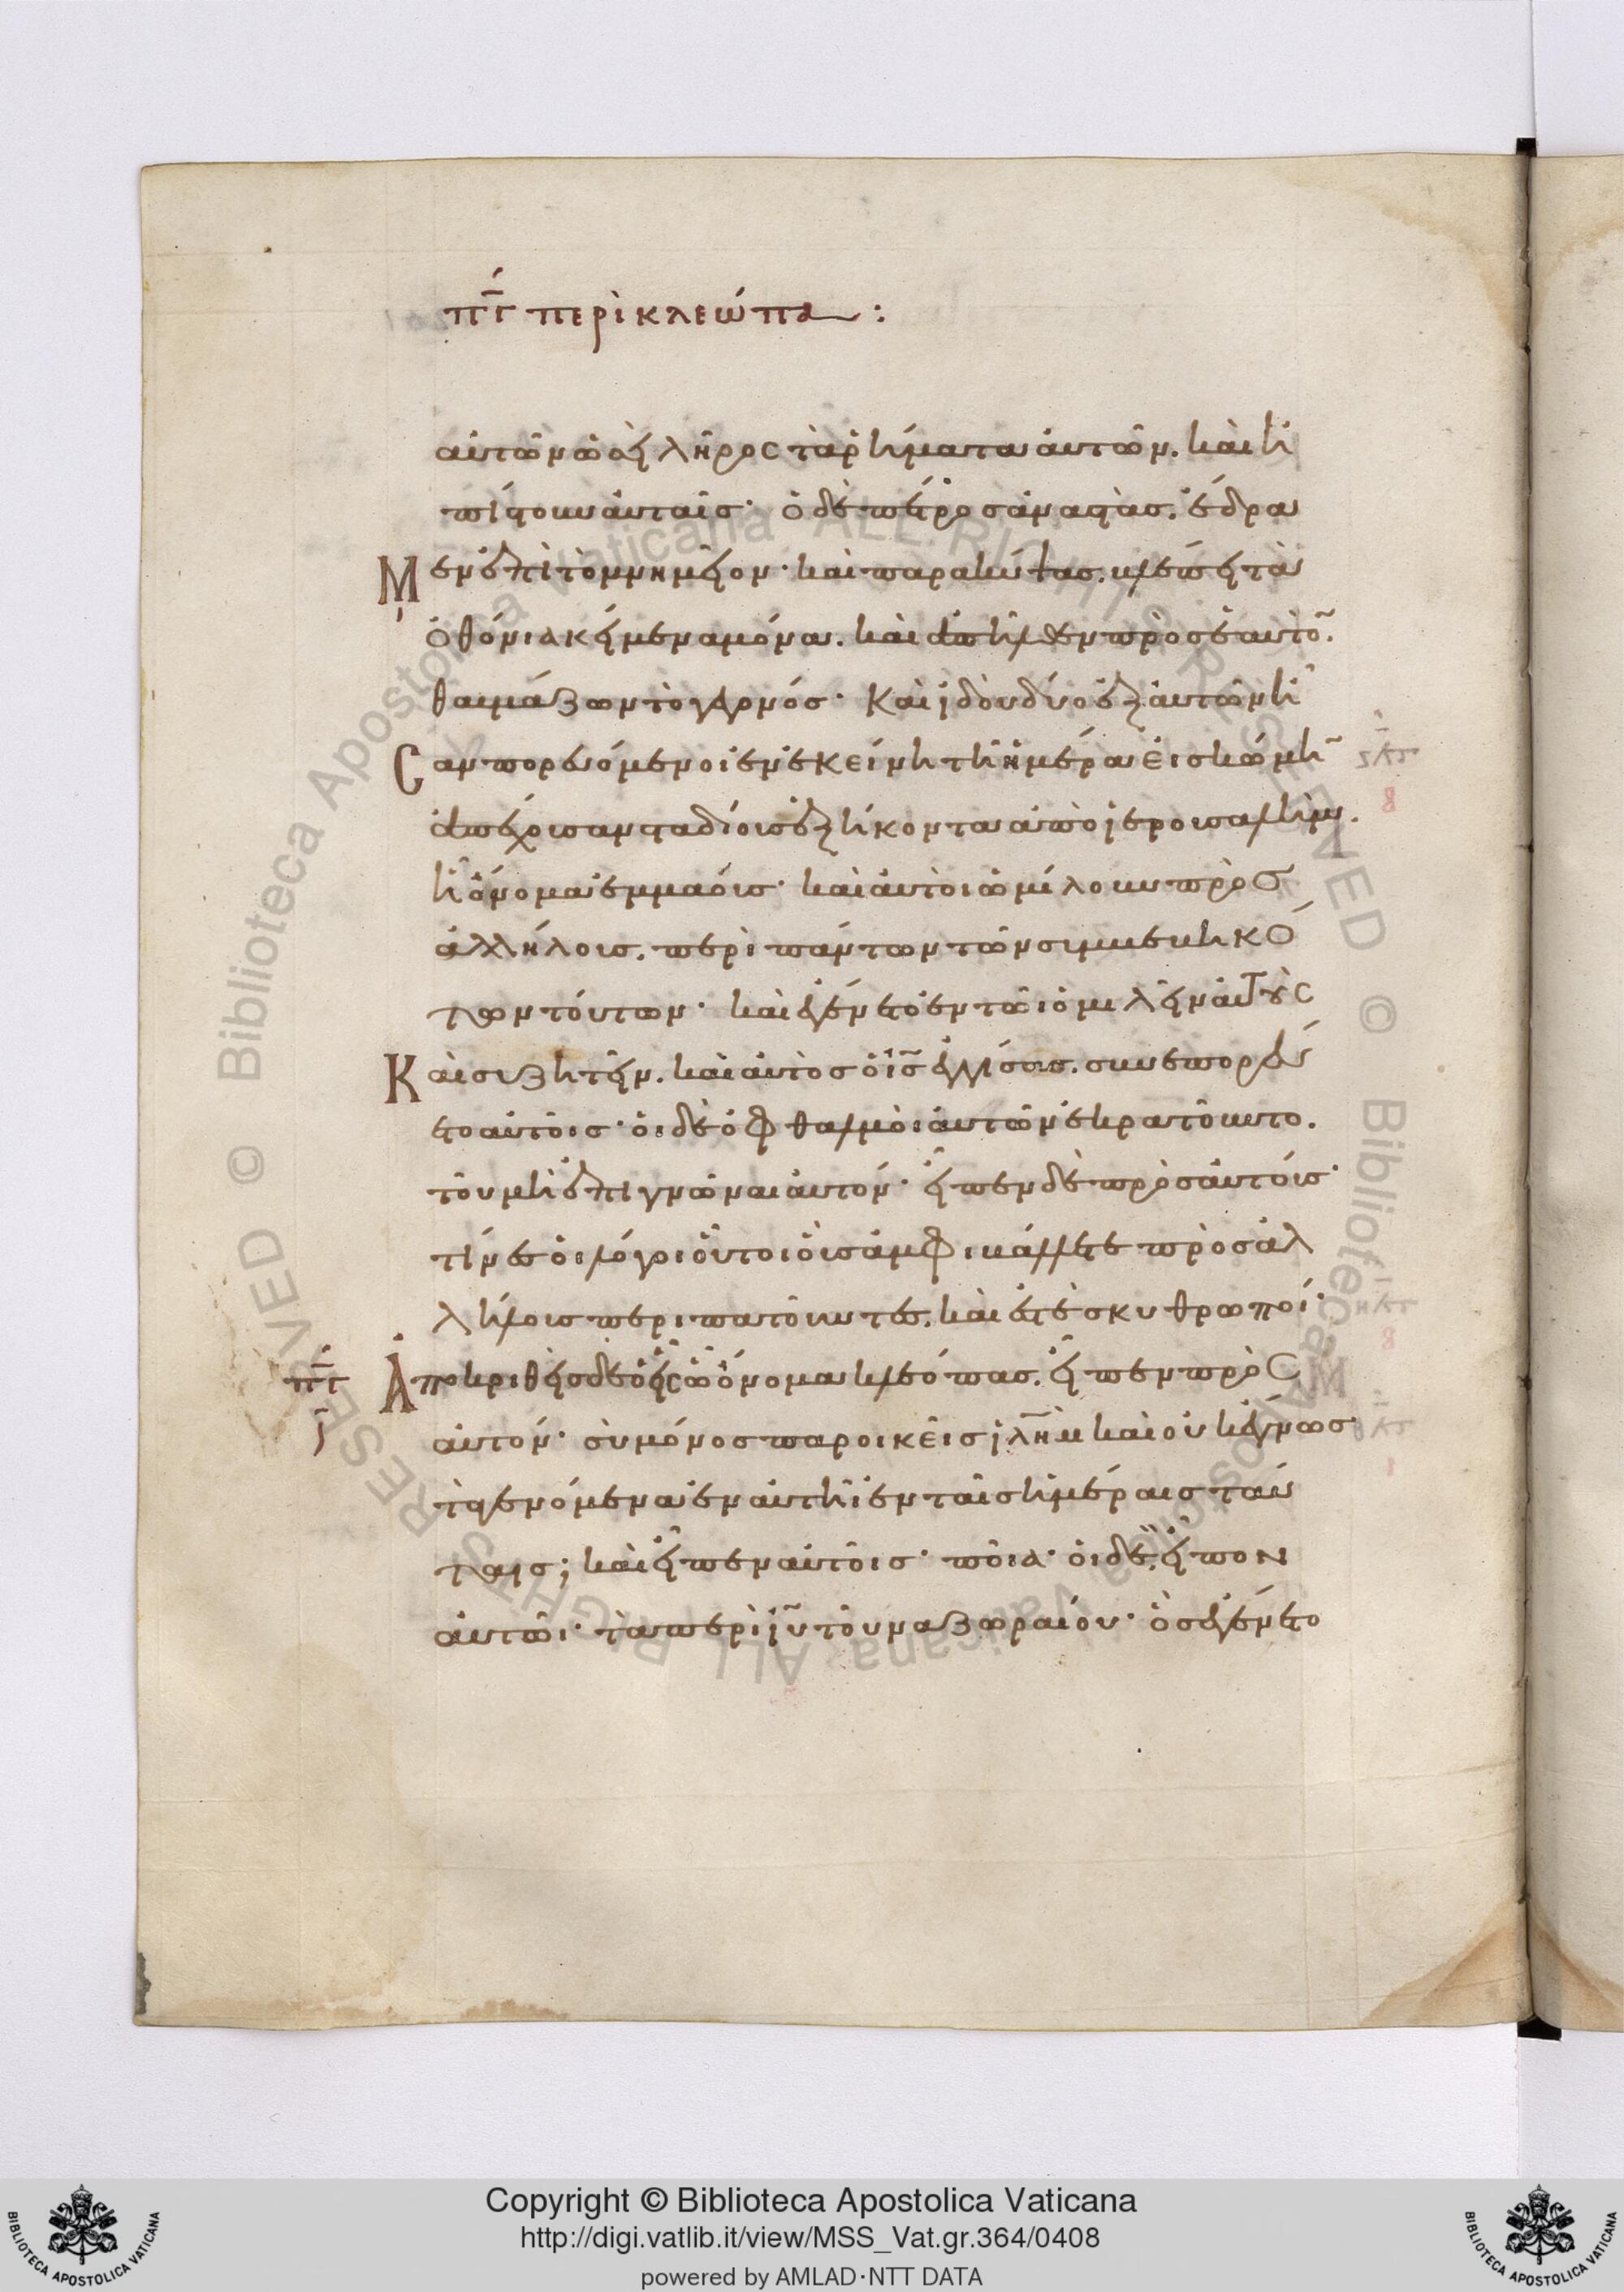 πγ περὶ κλεώπα :
αὐτῶν ὡσεὶ λῆρος τὰ ῥήματα αὐτῶν. καὶ ἠ
πίστουν αὐταῖς· ὁ δὲ πέτρος ἀναστὰς. ἔδρα
Μ εν ἐπὶ τὸ μνημεῖον· καὶ παρακύψας. βλέπει τὰ
ὀθόνια κείμενα μόνα. καὶ ἀπῆλθεν πρὸς ἑαυτὸ̃.
θαυμάζων τὸ γεγονός· Καὶ ἰδοὺ δύο ἐξ αὐτῶν ἦ
C αν πορευόμενοι ἐν ἐκείνη τῆ ἡμέρα εἰς κώμη̃
ἀπέχουσαν σταδίους ἑξήκοντα ἀπὸ ἱερουσαλὴμ.
ἧ ὄνομα ἐμμαούς· καὶ αὐτοὶ ὡμίλουν πρὸς
ἀλλήλους. περὶ πάντων τῶν συμβεβηκό
των τούτων· καὶ ἐγένετο ἐν τῶι ὁμιλεῖν αὐτοὺς
Κ αὶ συζητεῖν. καὶ αὐτὸς ὁ ις̅ ἐγγίσας. συνεπορεύ
ετο αὐτοῖς· οἱ δὲ ὀφθαλμοὶ αὐτῶν ἐκρατοῦντο.
τοῦ μὴ ἐπιγνῶναι αὐτόν· εἶπεν δὲ πρὸς αὐτούς·
τίνες οἱ λόγοι οὗτοι οὓς ἀμφιβάλλετε πρὸς ἀλ
λήλους περιπατοῦντες. καὶ ἐστὲ σκυθρωποί·
πγ Ἀποκριθεὶς δὲ ὁ εἷς ὧ ὄνομα κλεόπας. εἶπεν πρὸς
αὐτόν· σὺ μόνος παροικεῖς ιλη̅μ καὶ οὐκ ἔγνως
τὰ γενόμενα ἐν αὐτῆ ἐν ταῖς ἡμέραις ταύ
ταις; καὶ εἶπεν αὐτοῖς· ποῖα· οἱ δὲ εἶπον
αὐτῶι· τὰ περὶ ιυ̅ τοῦ ναζωραίου· ὃς ἐγένετο
Copyright © Biblioteca Apostolica Vaticana
http://digi.vatlib.it/view/MSS_Vat.gr.364/0408
powered by AMLAD·NTT DATA
BIBLIOTECA APOSTOLICA VATICANA
BIBLIOTECA APOSTOLICA VATICANA